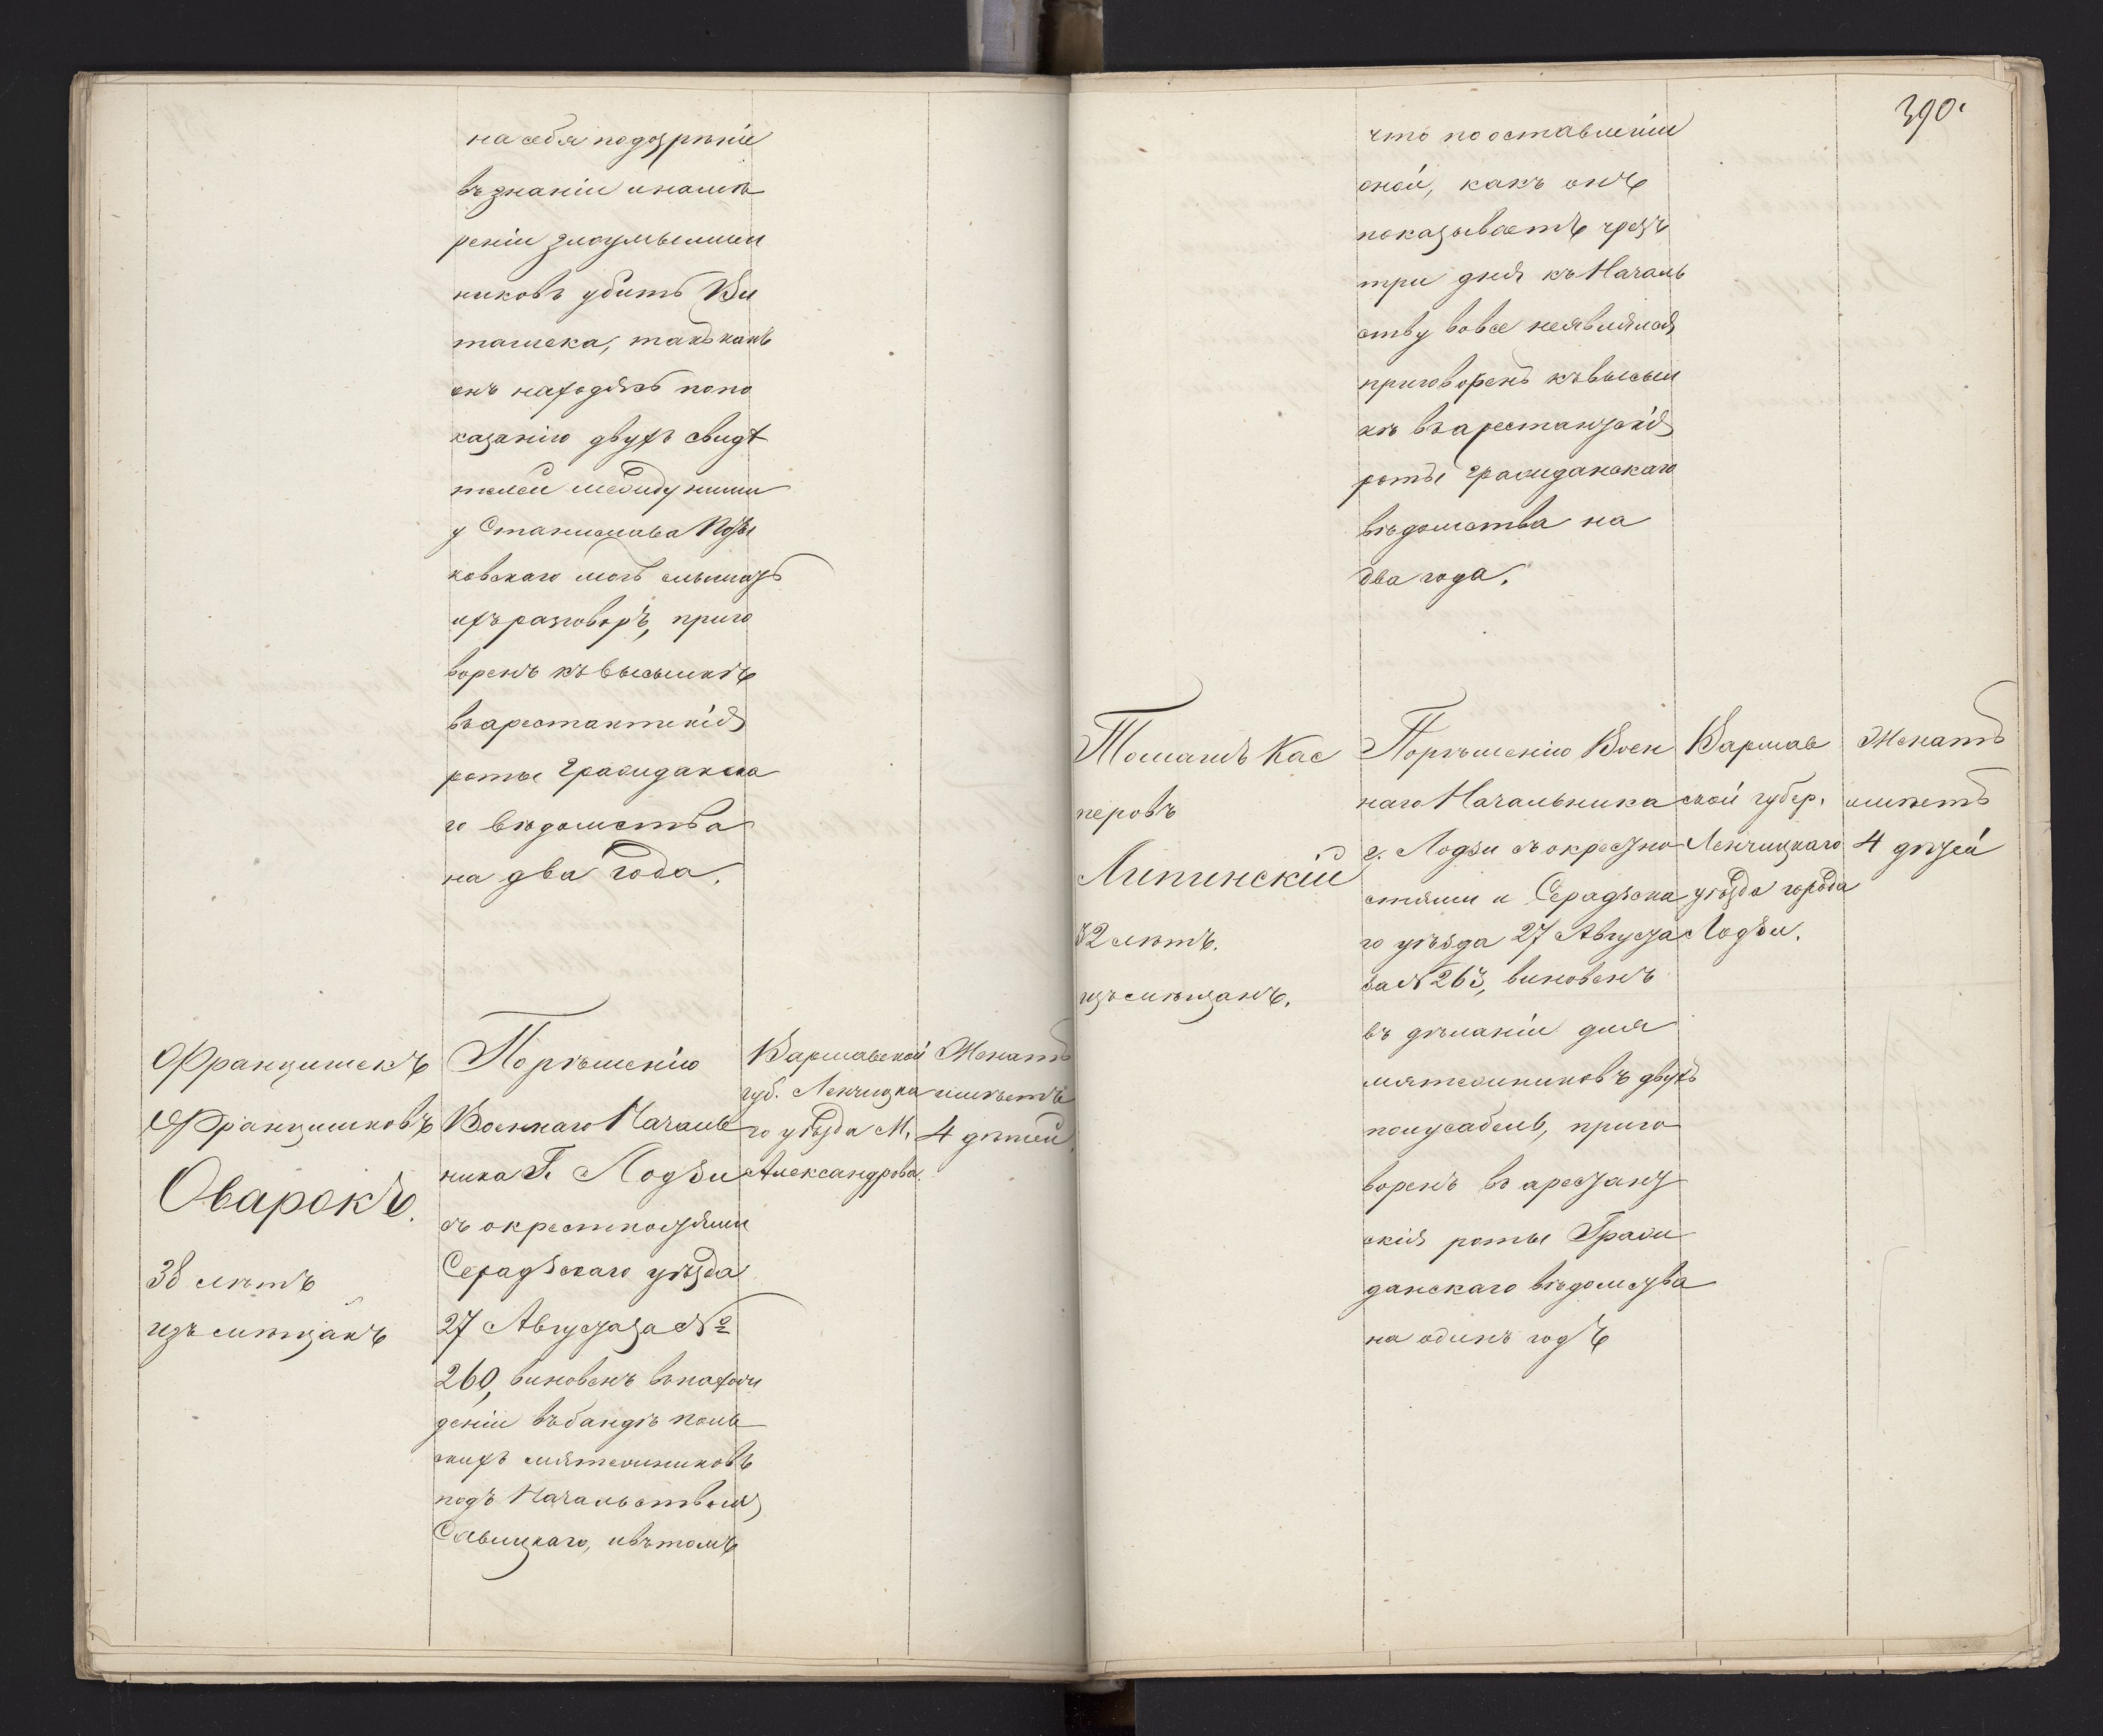 на себя подозрѣніе
въ знаніи и намѣ
реніи злоумышлен
никовъ убить Ви
такъ какъ
онъ находясь по по
казанію двухъ свидѣ
телей между ними
у Станислава
ковскаго могъ слышать
ихъ разговоръ, приго
воренъ къ высылкѣ
въ арестантскія
роты Гражданска
го вѣдомства
на два года.
Францишекъ
Францишковъ
Оварокъ.
38 лѣтъ
изъ мѣщанъ
По рѣшенію
Военнаго Началь
ника Г. Лодзи
съ окрестностями
Серадзскаго уѣзда
27 Августа за №
260, виновенъ въ нахож
деніи въ бандѣ поль
скихъ мятежниковъ
подъ Начальствомъ
Савицкаго, и въ томъ
Варшавской
губ. Ленчицка
го уѣзда М.
Александрова.
Женатъ
имѣетъ
4 дѣтей.
390.
что по оставленіи
оной, какъ онъ
показываетъ чрезъ
три дня къ Началь
ству вовсе неявлялся
приговоренъ къ высыл
кѣ въ арестантскія
роты гражданскаго
вѣдомства на
два года.
Томашъ Кас
перовъ
Липинскій
32 лѣтъ.
изъ мѣщанъ.
По рѣшенію Воен
наго Начальника
г. Лодзи съ окрестно
стями и Серадзска
го уѣзда 27 Августа
за № 263, виновенъ
въ дѣланіи для
мятежниковъ двухъ
полусабель, приго
воренъ въ арестант
скія роты Граж
данскаго вѣдомства
на одинъ годъ
Варшав
ской губер.
Ленчицкаго
уѣзда города
Лодзи.
Женатъ
имѣетъ
4 дѣтей